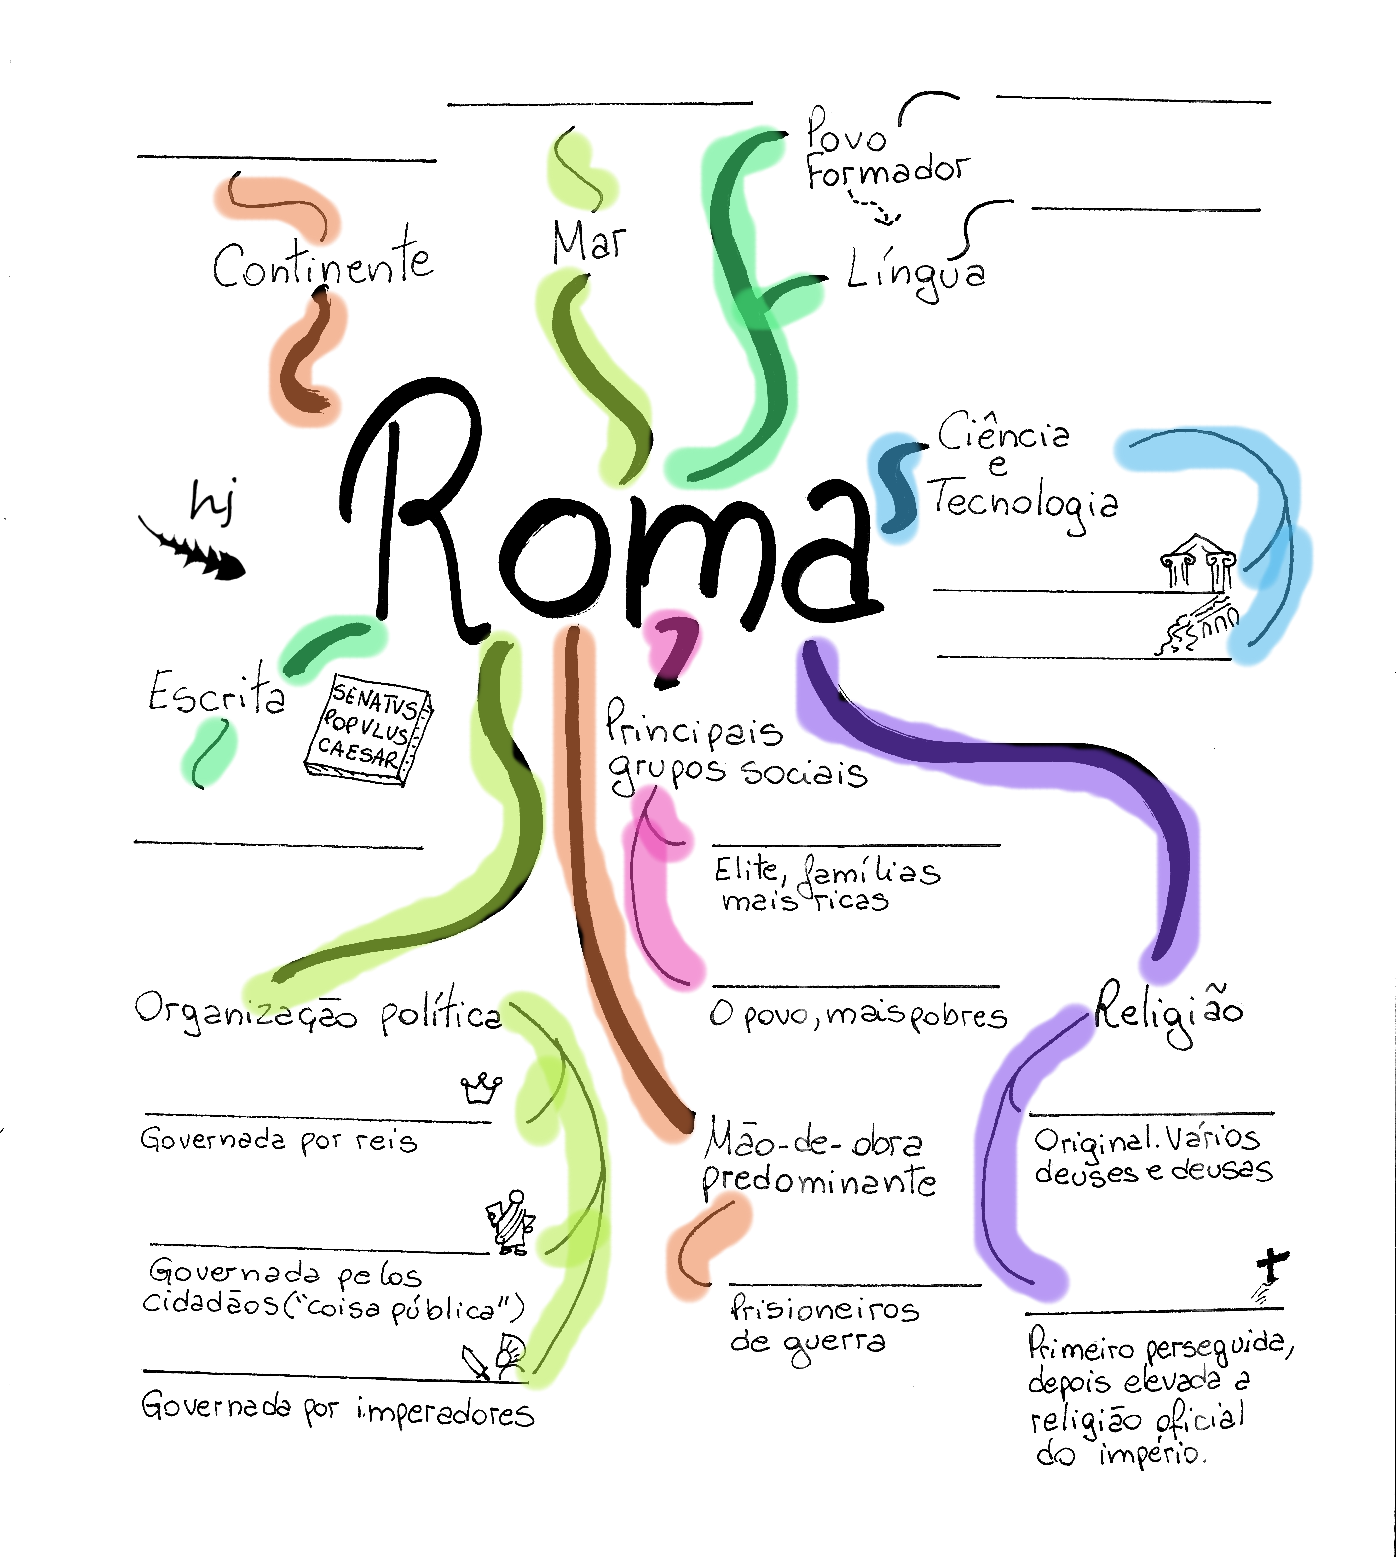 Povo
Formador
Mar
Continente
Língua
Roma
Ciência
e
Tecnologia
hj
Escrita
SENATVS
POPVLUS
CAESAR
Principais
grupos sociais
Elite, famílias
mais ricas
O povo, mais pobres
Organização política
Governada por reis
Governada pelos
cidadãos ("coisa pública")
Governada por imperadores
Mão-de-obra
predominante
Prisioneiros
de guerra
Religião
Original. Vários
deuses e deusas
Primeiro perseguida,
depois elevada a
religião oficial
do império.